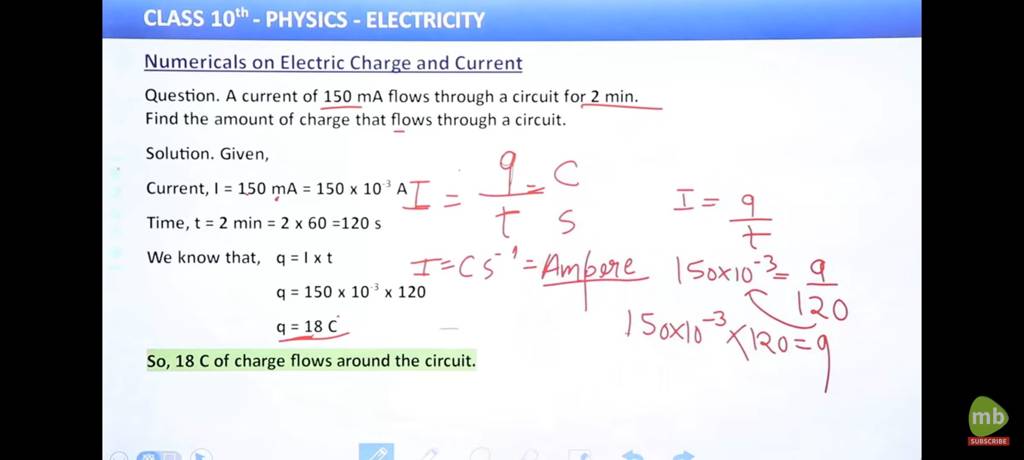 CLASS 10th - PHYSICS - ELECTRICITY
Numericals on Electric Charge and Current
Question. A current of 150 mA flows through a circuit for 2 min.
Find the amount of charge that flows through a circuit.
Solution. Given,
Current, I = 150 mA = 150 x 10⁻³ A
Time, t = 2 min = 2 x 60 =120 s
We know that, q = I x t
q = 150 x 10⁻³ x 120
q = 18 C
So, 18 C of charge flows around the circuit.
I = q/t = C/S
I = C s⁻¹ = Ampere
I = q/t
150x10⁻³ = q/120
150x10⁻³ x 120 = q
mb
SUBSCRIBE